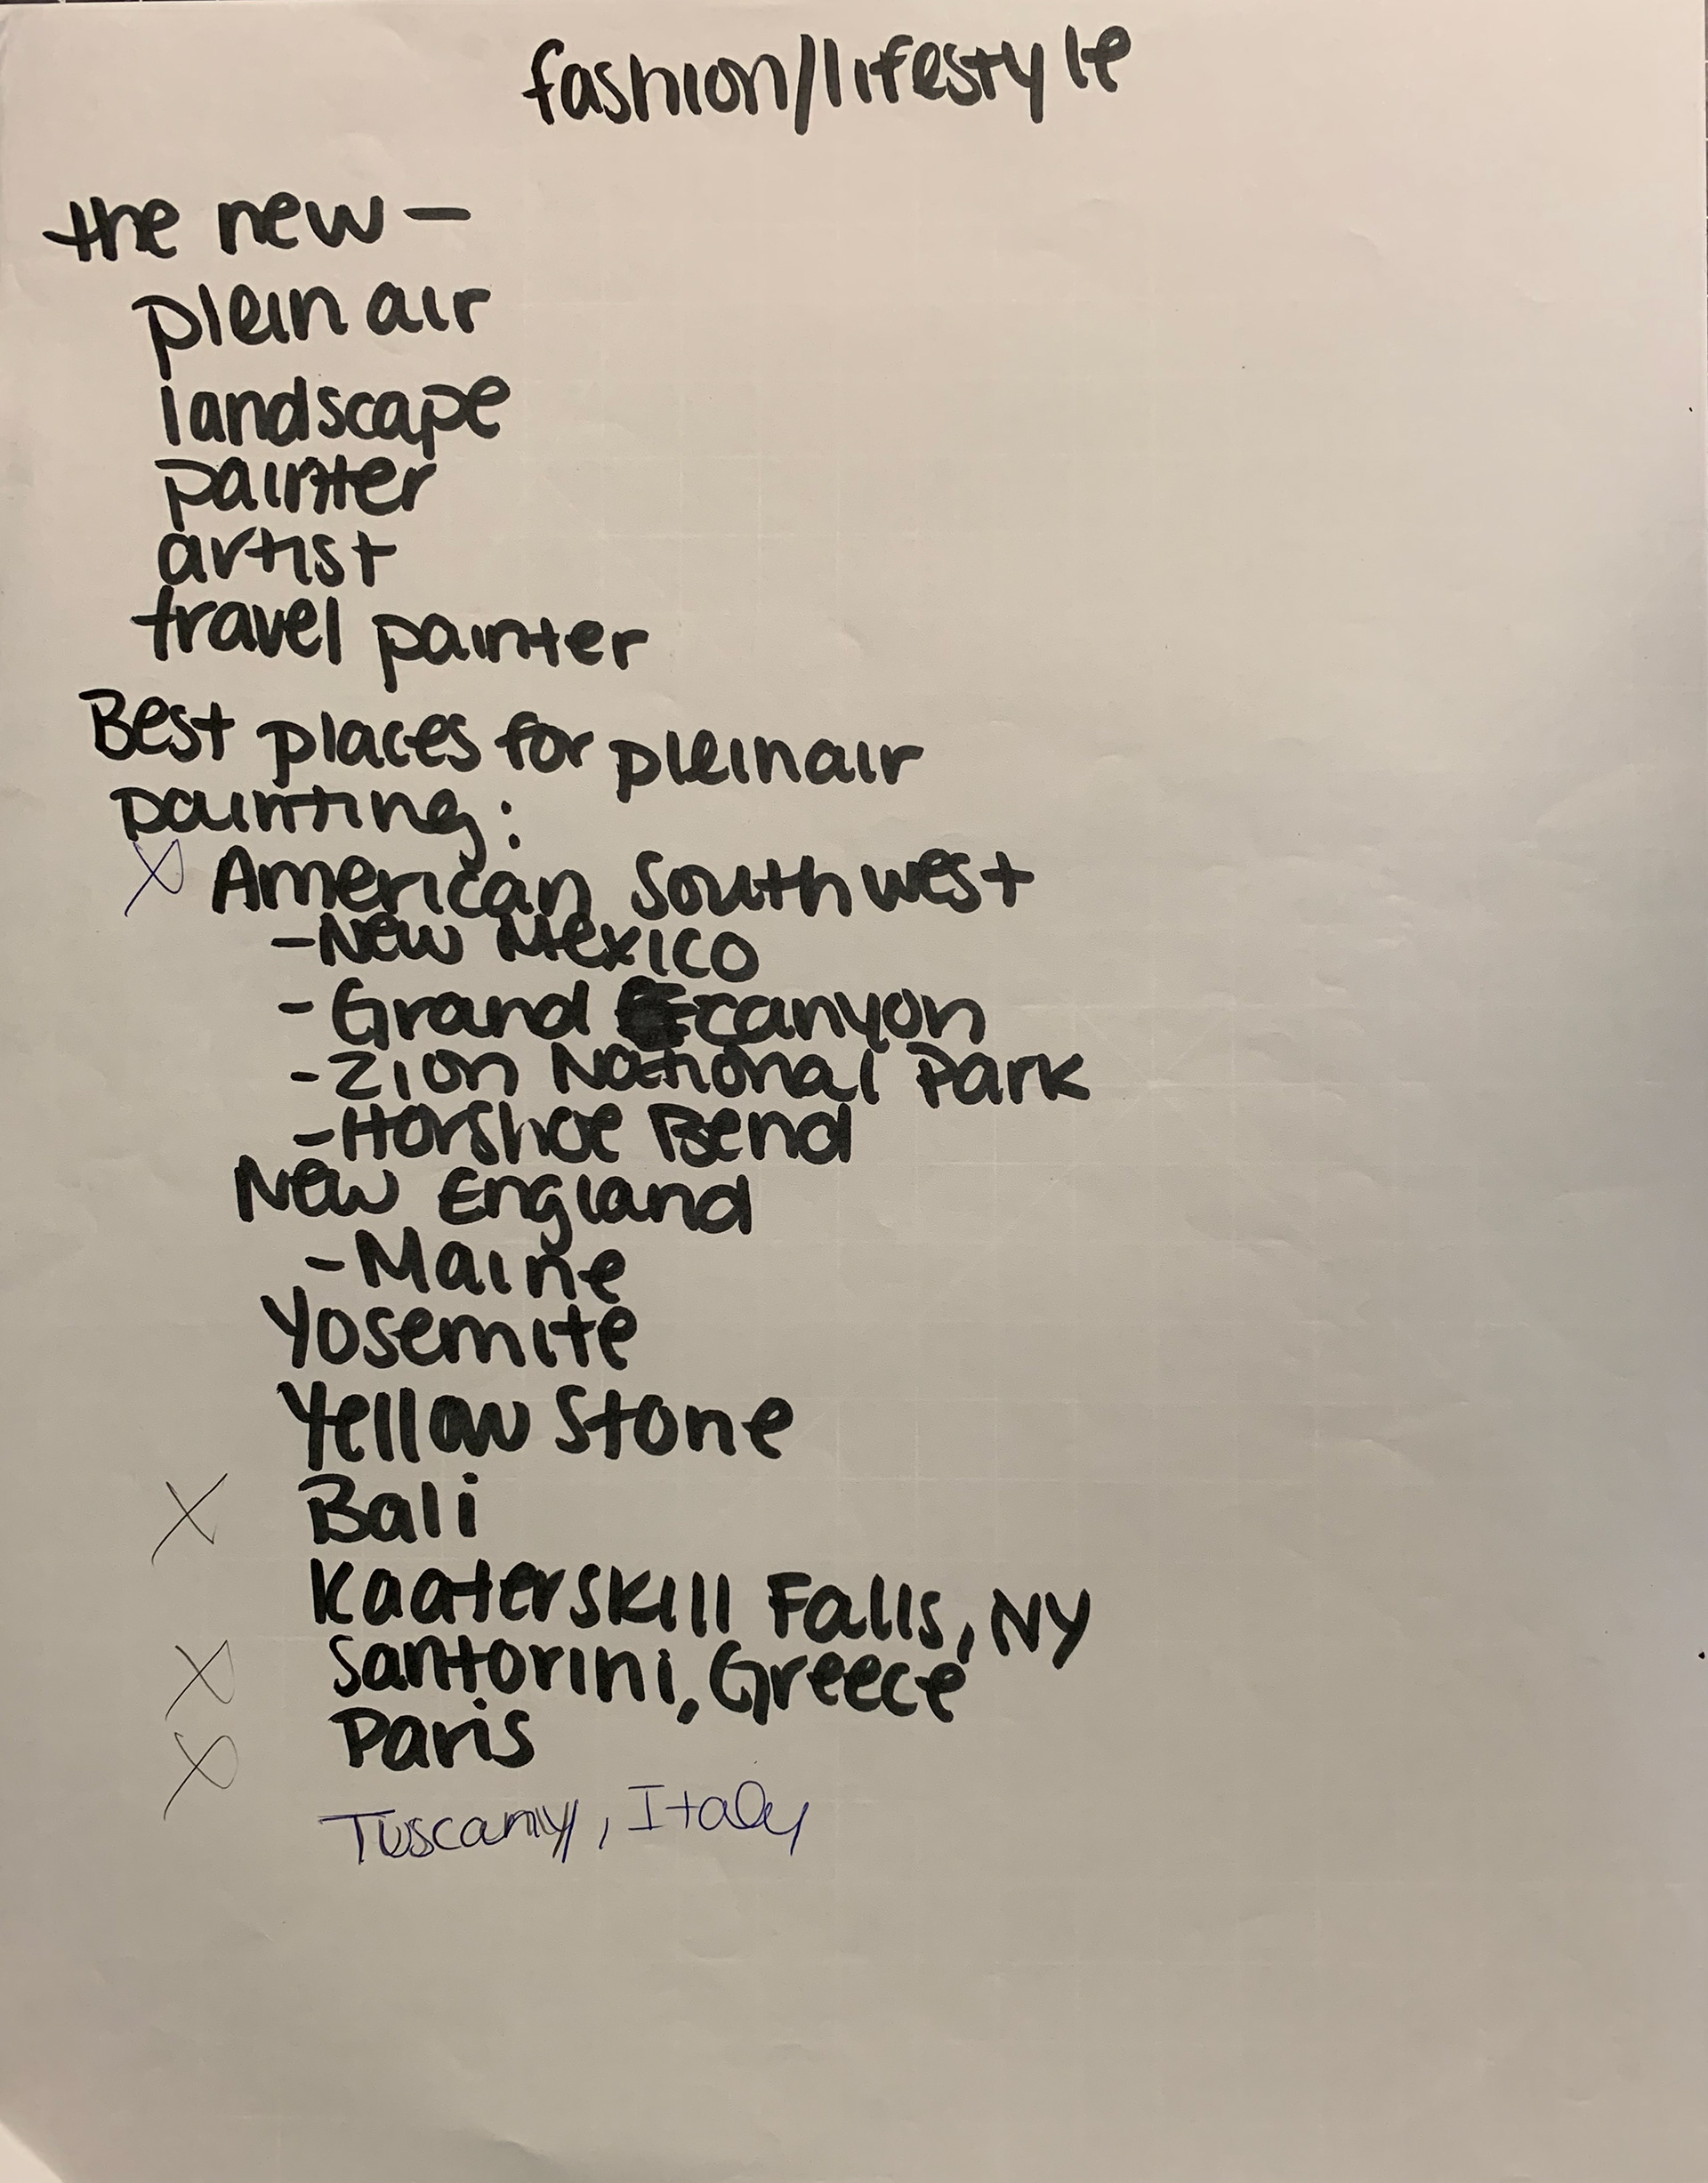 fashion/lifestyle
the new —
plein air
landscape
painter
artist
travel painter
Best places for pleinair
painting:
X American Southwest
- New Mexico
- Grand canyon
- Zion National Park
- Horshoe Bend
New England
- Maine
Yosemite
Yellow Stone
X Bali
Kaaterskill Falls, NY
X Santorini, Greece
X Paris
Tuscany, Italy